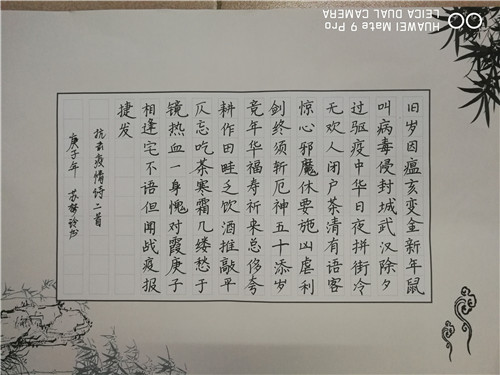 旧岁因瘟亥变金新年鼠
叫病毒侵封城武汉除夕
过驱疫中华日夜拼街冷
无欢人闭户茶清有语客
惊心邪魔休要施凶虐利
剑终须斩厄神五十添岁
竟年华福寿祈来总侈夸
耕作田畦乏饮酒推敲平
仄忘吃茶寒霜几缕愁于
镜热血一身愧对霞庚子
相逢宅不语但闻战疫报
捷发
抗击疫情诗二首
庚子年 苏
HUAWEI Mate 9 Pro
LEICA DUAL CAMERA